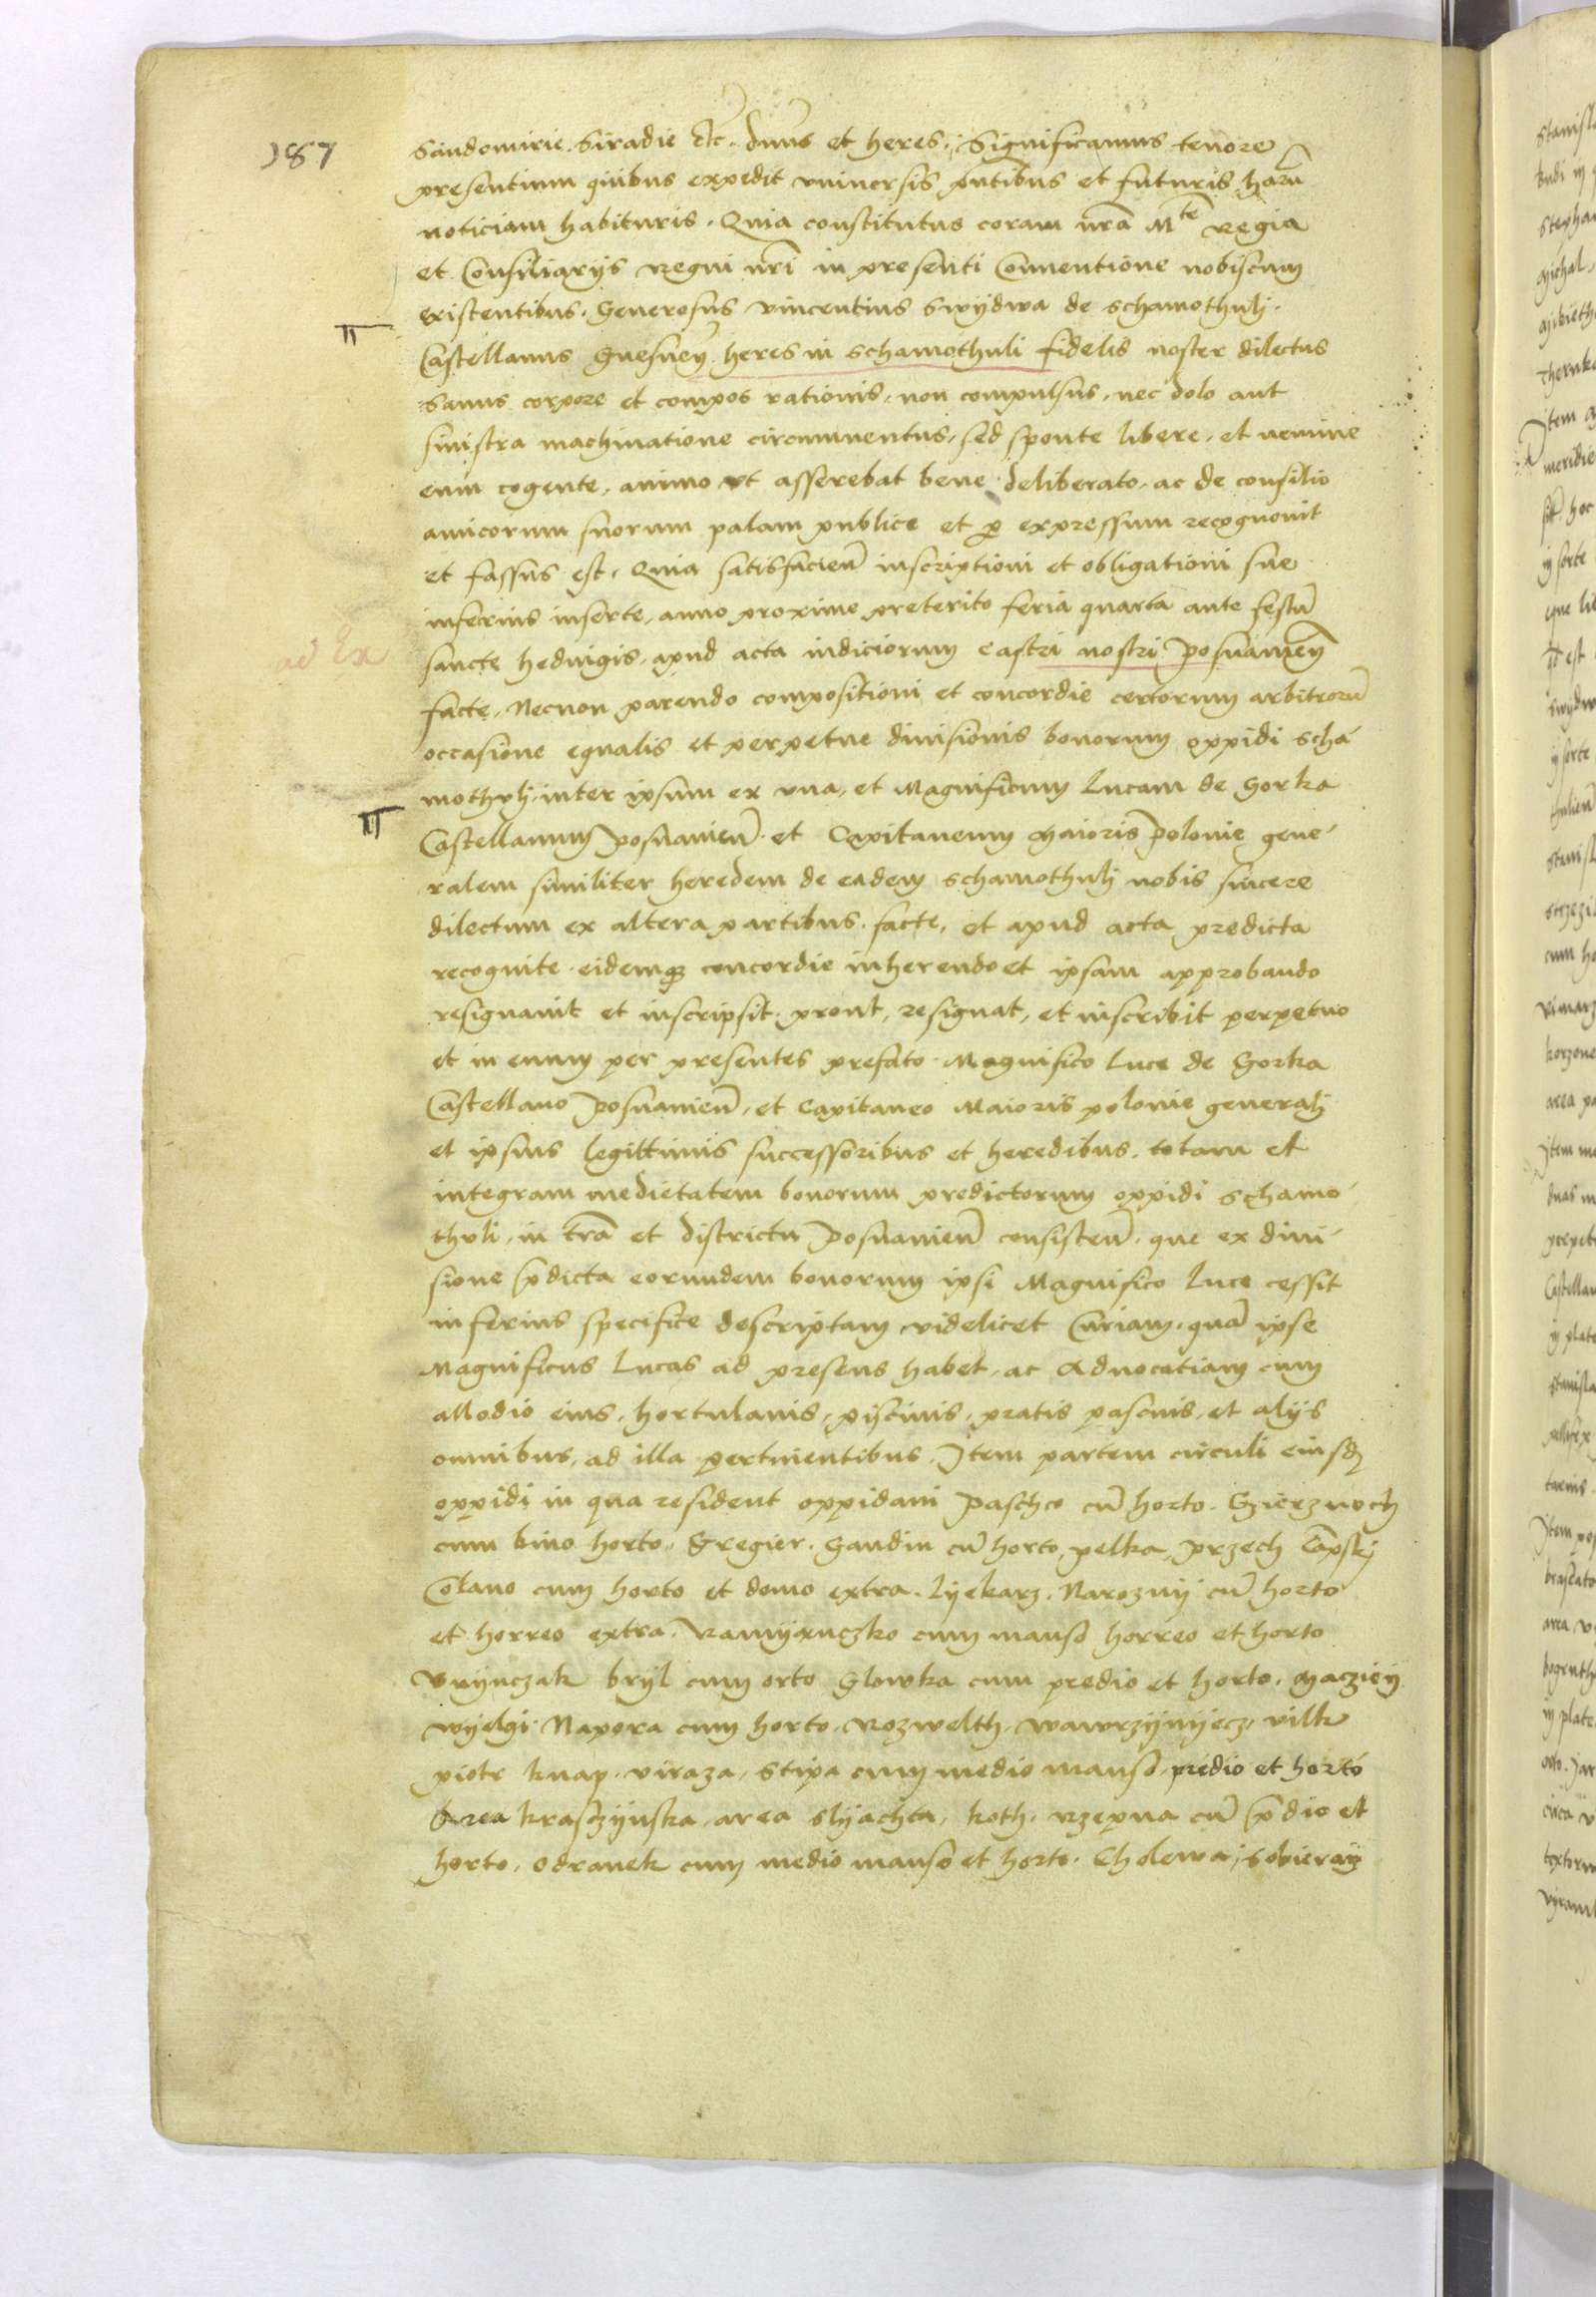 187
Sandomirie. Siradie etc. dnus et heres. Significamus tenore
presentium quibus expedit vniuersis pntibus et futuris haru
noticiam habituris. Quia constitutus coram nra Mte Regia
et Consiliarijs Regni nri in presenti Conuentione nobiscum
existentibus. Generosus vincentius Swydwa de schamothulj.
Castellanus Gnesnen heres in schamothuli fidelis noster dilectus
sanus corpore et compos rationis, non compulsus, nec dolo aut
sinistra machinatione circumuentus, sed sponte libere, et nemine
eum cogente, animo vt asserebat bene deliberato, ac de consilio
amicorum suorum palam publice et p expressum recognouit
et fassus est, Quia satisfacien inscriptioni et obligationi sue
inferius inserte, anno proxime preterito feria quarta ante festu
ad Ex
sancte heduigis, apud acta iudiciorum castri nostri Posnanien
facte, Necnon parendo compositioni et concordie certorum arbitroru
occasione equalis et perpetue diuisionis bonorum oppidi scha
mothulj, inter ipsum ex vna, et Magnificum Lucam de Gorka
Castellanum Posnanien. et Capitaneum Maioris Polonie gene
ralem similiter heredem de eadem schamothulj nobis sincere
dilectum ex altera partibus. facte, et apud acta predicta
recognite. eidemq concordie inherendo et ipsam approbando
resignauit et inscripsit. prout, resignat, et inscribit perpetuo
et in euum per presentes prefato Magnifico Luce de Gorka
Castellano Posnanien, et Capitaneo Maioris polonie generalj
et ipsius legittimis successoribus et heredibus. totam et
integram medietatem bonorum predictorum oppidi schamo
thuli, in tra et districtu Posnanien consisten. que ex diui
sione pdicta eorundem bonorum ipsi Magnifico Luce cessit
inferius specifice descriptam videlicet Curiam. qua ipse
Magnificus Lucas ad presens habet, ac Aduocatiam cum
allodio eius, hortulanis, piscinis, pratis pascuis, et alijs
omnibus, ad illa pertinentibus. Item partem circuli eiusd
oppidi in qua resident oppidani Paschco cu horto. Gzierznoch
cum bino horto, Gregier. Gandin cu horto, pelka, Przech
Colano cum horto et domo extra. Lyekarz. Naroznij cu horto
et horreo extra. cum manso horreo et horto
bryl cum orto Glowka cum predio et horto, Macziey
wyelgi. Napora cum horto. Rozwelth. wawrzynyecz, vilk
piotr knap. viraza, stipa cum medio manso, predio et horto
Area kraszynska, area slyachta, koth. Rzepna cu pdio et
horto, odranek cum medio manso et horto. Cholewa, sobieray